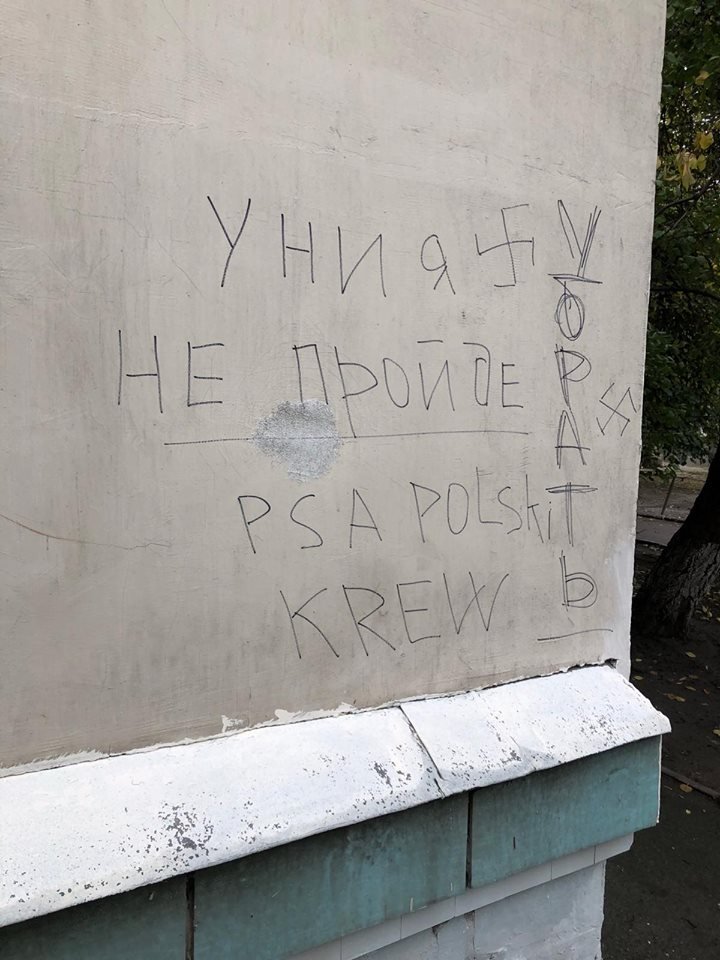 УНИя
НЕ ПРОЙдЕ
PSA POLSki
KREW
УбРАТЬ